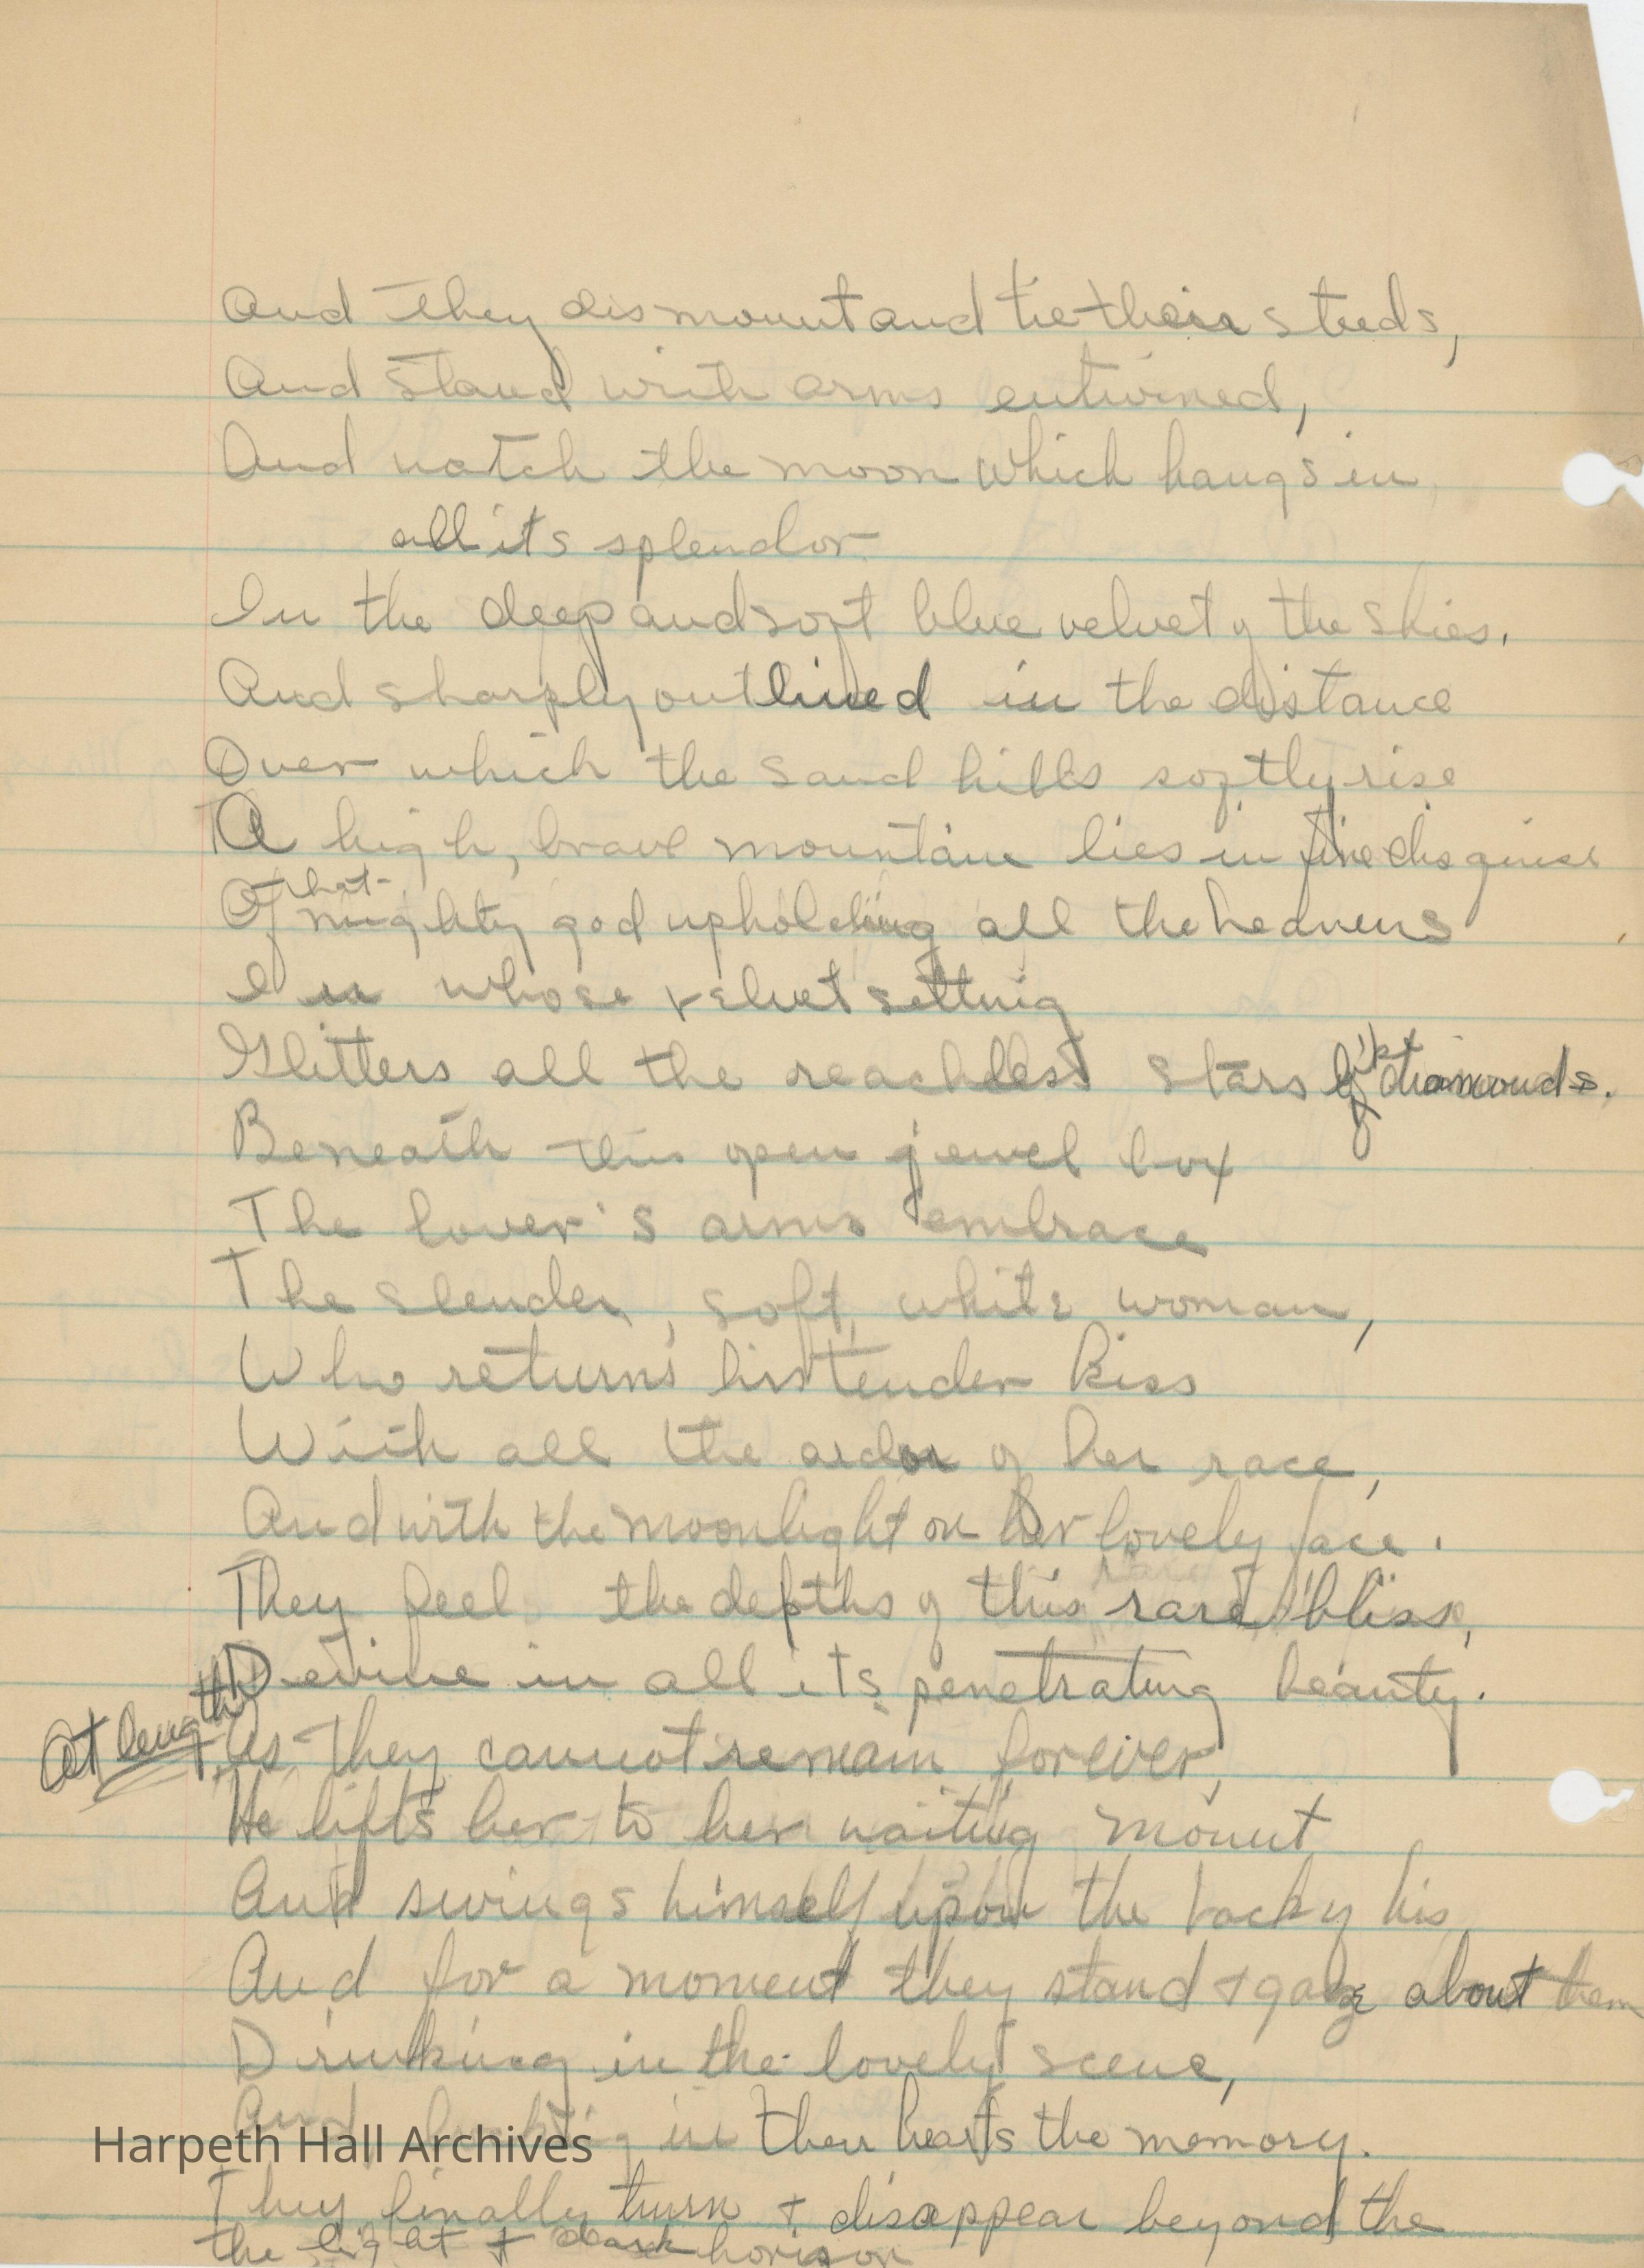 And they dismount and tie their steeds,
And stand with arms entwined,
And watch the moon which hangs in
all its splendor
In the deep and soft blue velvet of the skies.
And sharply outlined in the distance
Over which the sand hills softly rise
A high, brave mountain lies in fine disguise
Of that mighty god upholding all the heavens
In whose velvet setting
Glitters all the reachless stars like diamonds.
Beneath this open jewel box
The lover's arms embrace
The slender, soft, white woman,
Who returns his tender kiss
With all the ardor of her race,
And with the moonlight on her lovely face.
They feel the depths of this rare bliss,
Devine in all its penetrating beauty.
At length
As they cannot remain forever,
He lifts her to her waiting mount
And swings himself upon the back of his
And for a moment they stand + gaze about them
Drinking in the lovely scene,
And in their hearts the memory.
Harpeth Hall Archives
They finally turn + disappear beyond the
the light + dark horizon